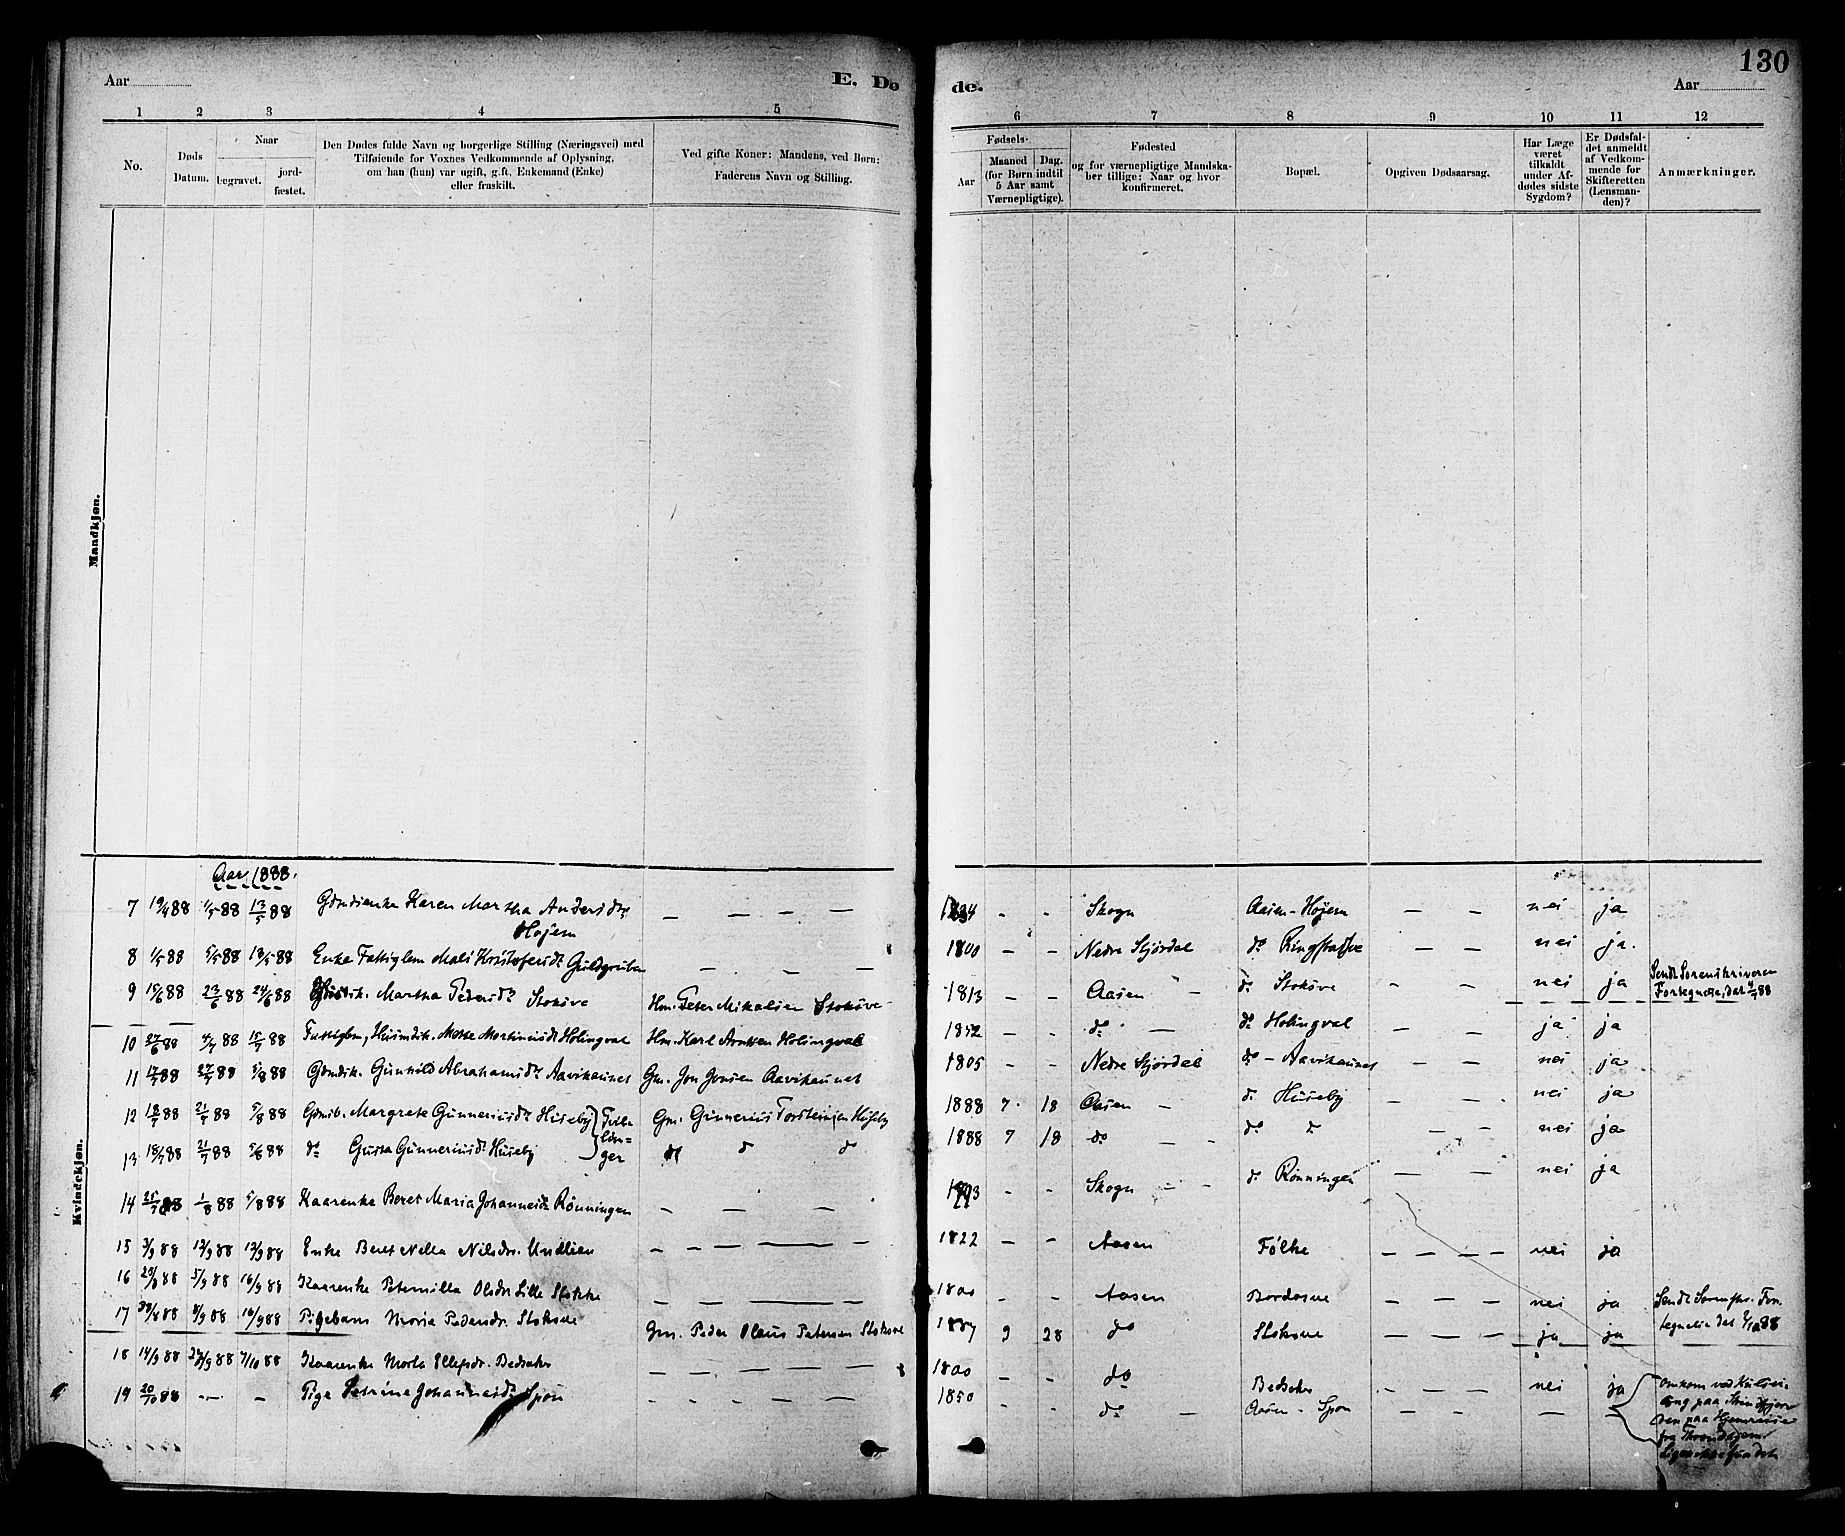 130
Aar
E. Dø
de.
Aar
1 2 3 4 5 6 7 8 9 10 11 12
No.
Døds Datum.
Naar
begravet.
jord-
fæstet.
Den Dødes fulde Navn og borgerlige Stilling (Næringsvei) med
Tilføiende for Voxnes Vedkommende af Oplysning,
om han (hun) var ugift, gift, Enkemand (Enke)
eller fraskilt.
Ved gifte Koner: Mandens, ved Børn:
Faderens Navn og Stilling.
Fødsels-
Aar
Maaned
(for Børn indtil
5 Aar samt
Værnepligtige).
Dag.
Fødested
og for værnepligtige Mandska-
ber tillige: Naar og hvor
konfirmeret.
Bopæl.
Opgiven Dødsaarsag.
Har Læge
været
tilkaldt
under Af-
dødes sidste
Sygdom?
Er Dødsfal-
det anmeldt
af Vedkom-
mende for
Skifteretten
(Lensman-
den)?
Anmærkninger.
Mandkjøn.
Kvindekjøn.
Aar 1888.
7 19/4 88 1/5 88 13/5 88 Karen Martha Andersdt. — — — — - - Skogn Aasen-Hojem — — nei ja
Hojem
8 1/5 88 5/5 88 13/5 88 Enke Fattiglem Mali Kristofersdt Guldgruben — — — 1800 - - Nedre Stjørdal do — — nei ja.
9 15/6 88 23/6 88 24/6 88 Martha Pedersdt Stokove Hm. Peter Mikalsen Stokove 1813 - - Aasen do Stokove - - nei ja Sendt Sorenskriveren
Fortegnelse, dat 88
10 27/6 88 4/7 88 15/7 88 Fattiglem, Martinusdt Holingval Hm. Karl Arntsen Holingval 1852 - - do do Holingval - - ja ja
11 17/7 88 27/7 88 5/8 88 Gunhild Abrahamsdt Aavikaunet Gm. Jon Aavikaunet 1805 - - Nedre Stjørdal do - Aavikaunet - - nei ja
12 18/7 88 21/7 88 5/8 88 Gdmb. Margrete Gunneriusdt Huseby Tvil- Gm. Gunnerius Huseby 1888 7 18 Aasen do Huseby - - nei ja
lin-
13 18/7 88 21/7 88 5/8 88 do Gusta Gunneriusdt Huseby ger do do do 1888 7 18 do - - do do - - nei ja
14 25/7 88 1/8 88 5/8 88 Kaarenke Beret Maria Johannesdt Rønningen — — — - - Skogn - - do Rønningen - - nei ja
15 3/9 88 12/9 88 13/9 88 Enke Beret Nella Nilsdr. — — — — 1822 - - Aasen Følke - - - - nei ja
16 5/9 88 16/9 88 Kaarenke Peternilla Olsdr. Lille Stokke — — — — 1800 - - Aasen - - - - nei ja Sendt For-
17 8/9 88 16/9 88 Pigebarn Maria Pedersdr. Stokove Gm. Peder Olaus Petersen Stokove 1887 9 28 do Stokove - - - - ja ja tegnelse dat 88
18 14/9 88 7/10 88 Kaarenke — — — — 1800 - - do - - - nei ja
19 20/10 88 — — Pige Petrine Johannesdt Spon — — — — 1850 - - do — Aasen - Spon — — — — — Omkom ved Kulsei-
ling paa
den paa Hjemreise
fra Throndhjem